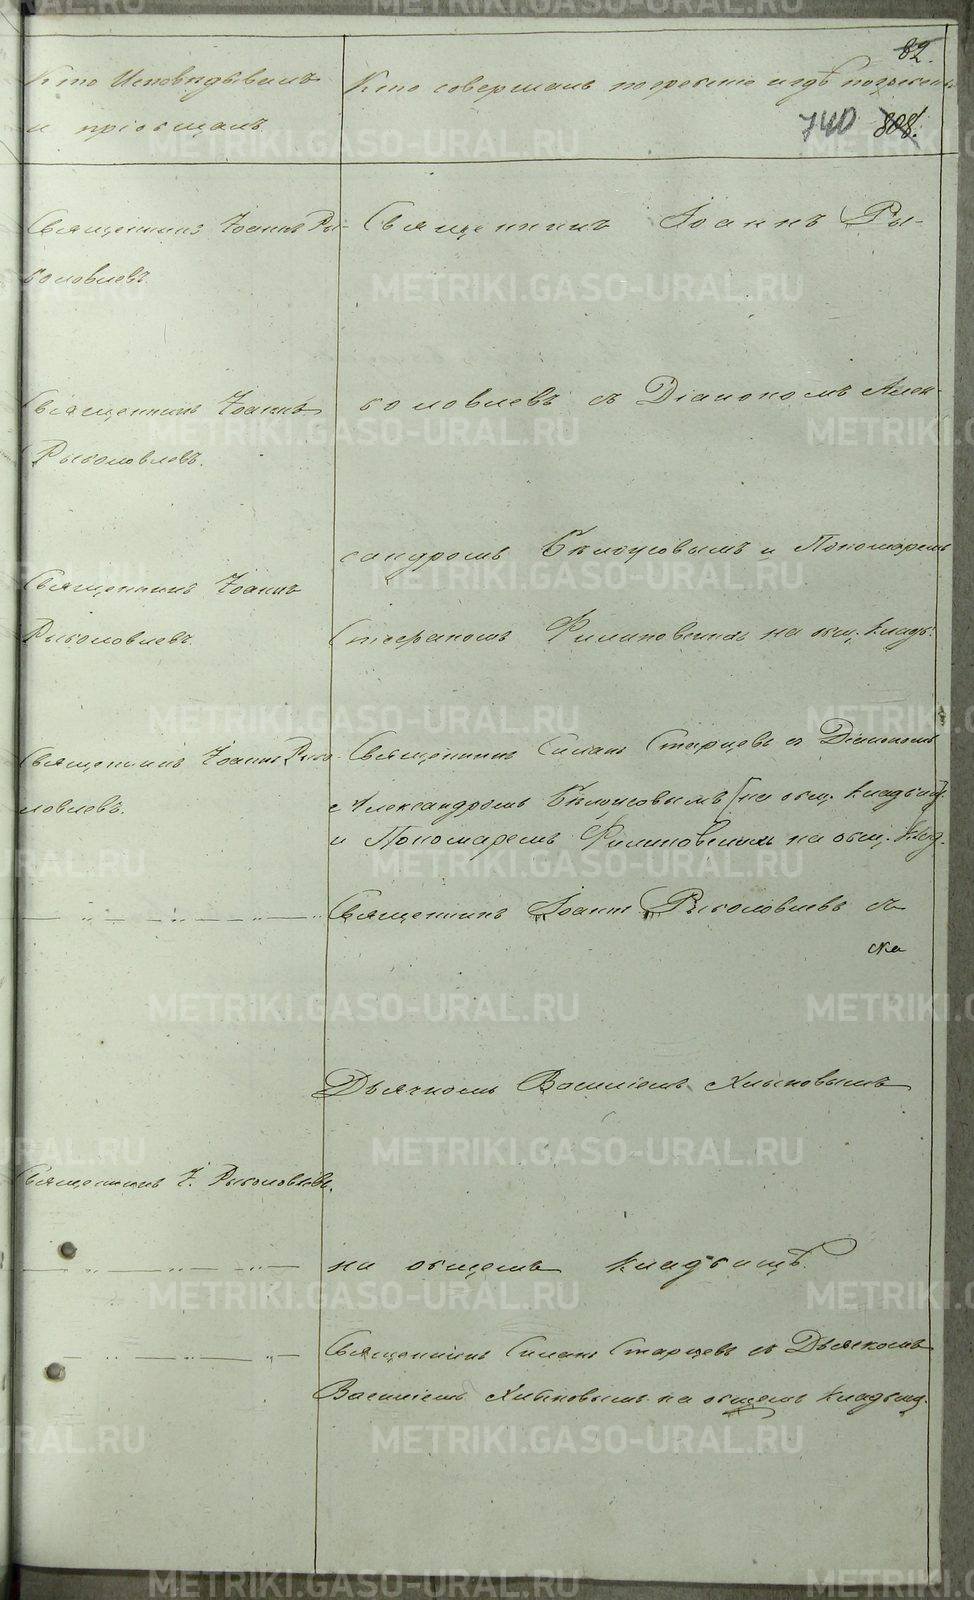 82.
Кто Исповѣдывалъ
и пріобщалъ.
Кто совершалъ погребеніе и гдѣ погребены
740 808.
Священникъ Іоаннъ Ры-
боловлевъ.
Священникъ Іоаннъ
Рыболовлевъ.
Священникъ Іоаннъ
Рыболовлевъ.
Священникъ Іоаннъ Рыбо-
ловлевъ.
Священникъ І. Рыболовлевъ.
Священникъ Іоаннъ Ры-
боловлевъ съ Діакономъ Алек-
сандромъ Бѣлоусовымъ и Пономаремъ
Стефаномъ на общ. кладб.
Священникъ Силанъ Старцевъ съ Діакономъ
Александромъ Бѣлоусовымъ [на общ. кладбищ.]
и Пономаремъ на общ. клад.
Священникъ Іоаннъ Рыболовлевъ съ
Дьячкомъ Василіемъ Хлыновымъ
на общемъ кладбищѣ.
Священникъ Силанъ Старцевъ съ Дьячкомъ
Василіемъ Хлыновымъ на общемъ кладбищ.
METRIKI.GASO-URAL.RU